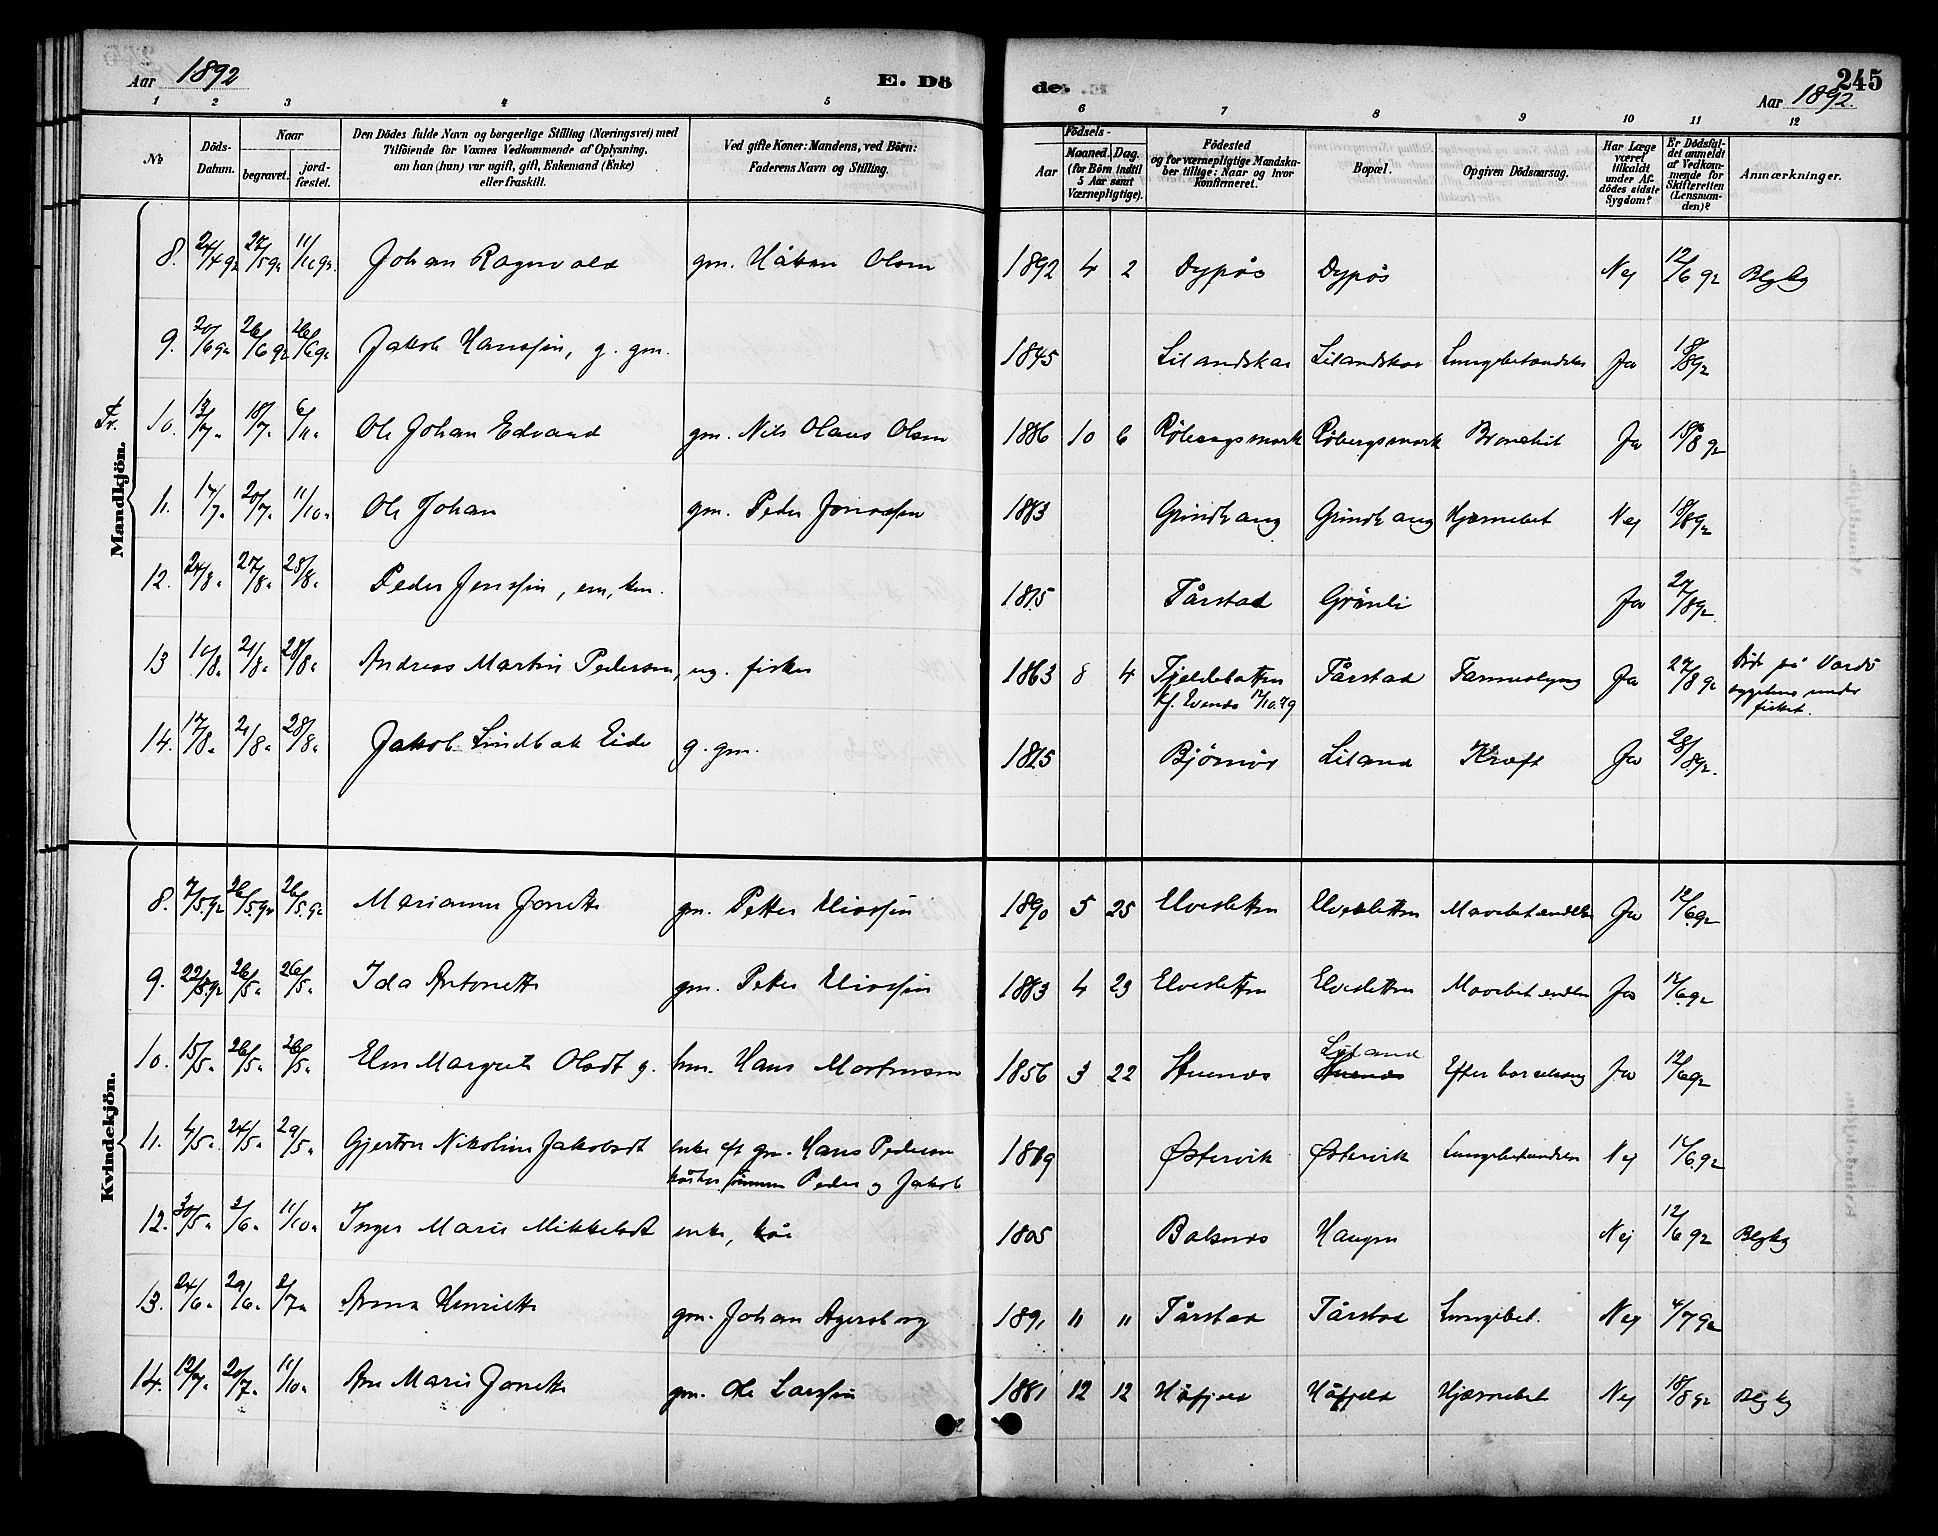 Aar 1892
E. Dö
1 2 3 4 5
No
Döds-Datum.
Naar
begravet.
jord-fæstet.
Den Dödes fulde Navn og borgerlige Stilling (Næringsvei) med
Tilföiende for Voxnes Vedkommende af Oplysning,
om han (hun) var ugift, gift, Enkemand (Enke)
eller fraskilt.
Ved gifte Koner: Mandens, ved Börn:
Faderens Navn og Stilling.
Mandkjön.
8. 24/4 92 27/5 92 11/10 92. Johan Ragnvald gm. Håkon Olsen
9. 20/6 92 26/6 92 26/6 92 Jakob Hanssen, g. gm.
Fr.
10. 13/7 " 18/7 " 6/11 " Ole Johan Edvard gm. Nils Olaus Olsen
11. 17/7 " 20/7 " 11/10 " Ole Johan gm. Peder Jonassen
12. 24/8 " 27/8 " 28/8 " Peder Jenssen, em, km.
13 10/8 " 21/8 " 28/8 " Andreas Martin Pedersen, ug. fisker
14. 17/8 " 21/8 " 28/8 " Jakob Lindbak Eide g. gm.
Kvindekjön.
8. 7/5 92 26/5 92 26/5 92 Marianne Jonette gm. Petter Eliassen
9. 22/5 92 26/5 " 26/5 " Ida Antonette gm. Petter Eliassen
10. 15/5 " 26/5 " 26/5 " Elen Margrete Olsdt g. hm. Hans Mortensen
11. 4/5 " 24/5 " 29/5 " Gjertru Nikoline Jakobsdt enke eft gm. Hans Pedersen
hos sønnen Peder og Jakob
12. 30/5 " 2/6 " 11/10 " Inger Marie Mikkelsdt enke, kår
13. 24/6 " 29/6 " 2/7 " Anna Henriette gm. Johan Agersborg
14. 12/7 " 20/7 " 11/10 " Ane Marie Jonette gm. Ole Larssen
de.
245
Aar 1892.
6 7 8 9 10 11 12
Födsels-
Aar
Maaned. Dag.
(for Börn indtil
5 Aar samt
Værnepligtige).
Födested
og for værnepligtige Mandska-
ber tillige: Naar og hvor
konfirmeret.
Bopæl.
Opgiven Dödsaarsag.
Har Læge
været
tilkaldt
under Af-
dödes sidste
Sygdom?
Er Dödsfal-
det anmeldt
af Vedkom-
mende for
Skifteretten
(Lensman-
den)?
Anmærkninger.
1892 4 2 Dypös Dypös Nej 12/6 92 Blgky
1845 Lilandskar Lilandskar Lungebetændelse Ja 18/8 92
1886 10 6 Röbergsmark Röbergsmark Bronchit Ja 18/8 92
1883 Grindhaug Grindhaug Hjernebet Nej 18/8 92
1815 Tårstad Grönli Ja 27/8 92.
1863 8 4 Fjeldebotten Tårstad Ja 27/8 92 Död på Vardö
Kf. Evenes 12/10.79 sygehus under
fisket.
1825 Björnör Liland Kræft Ja 28/8 92.
1890 5 25 Elvesletten Elvesletten Mavebetændelse Ja 12/6 92
1883 4 23 Elvesletten Elvesletten Mavebetændelse Ja 12/6 92
Liland
1856 3 22 Stuenes Stuenes Efter barselseng Ja 12/6 92
1819 Østervik Østervik Lungebetændelse Nej 12/6.92
1805 Balsnes Haugen Nej 12/6 92 Blgky
1891 11 11 Tårstad Tårstad Lungebet. Nej 4/7 92
1881 12 12 Håfjeld Håfjeld Hjærnebet Nej 18/8 92 Blgky